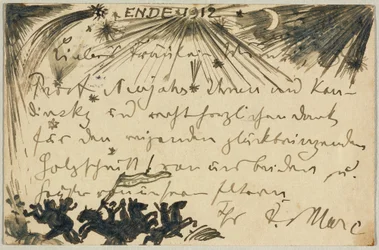 ENDE 1912
Liebes Fräulein
Prost Neujahr Ihnen und Kan-
dinsky und recht herzlichen Dank
für den reizenden glückbringenden
Holzschnitt! von uns beiden u.
Eltern
Ihr F. Marc